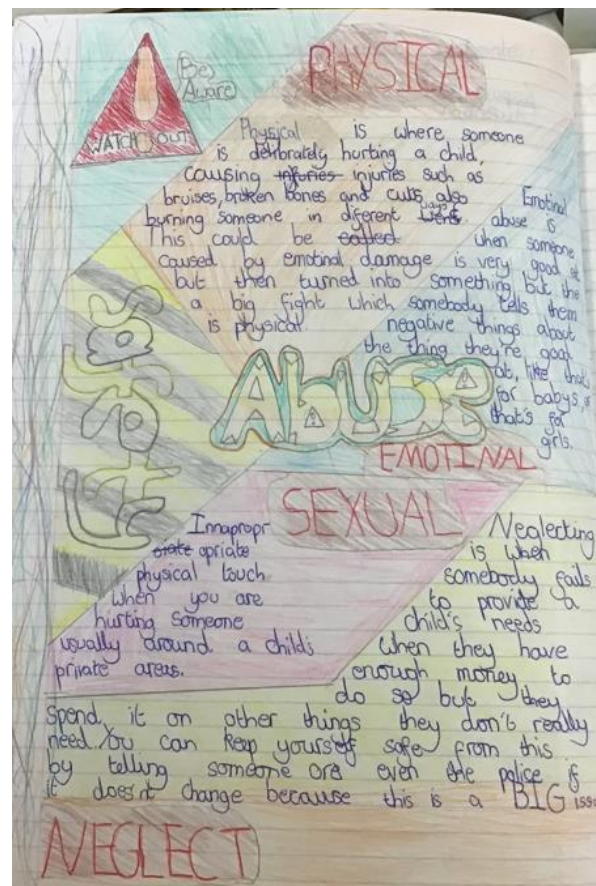 Be
Aware
WATCH OUT
PHYSICAL
Physical is where someone
is delibrately hurting a child,
causing injuries such as
bruises, broken bones and cuts, also
burning someone in diferent ways
This could be
caused by emotinal damage
but then turned into
a big fight which
is physical.
Emotinal
abuse is
when someone
is very good at
something but the
somebody tells them
negative things about
the thing they're good
at, like that's
for babys, or
that's for
girls.
Safety
ABUSE
EMOTINAL
SEXUAL
Innapropr
opriate
physical touch
when you are
hurting someone
usually around a child's
private areas.
Neglecting
is when
somebody fails
to provide a
child's needs
when they have
enough money to
do so but they
Spend it on other things they don't really
need. You can keep yourself safe from this
by telling someone ore even the police if
it doesn't change because this is a BIG
NEGLECT